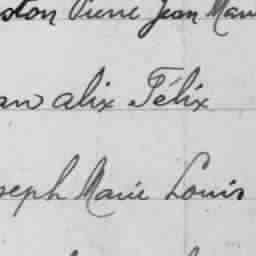 ston Pierre Jean Mari
an alix Félix
seph Marie Louis